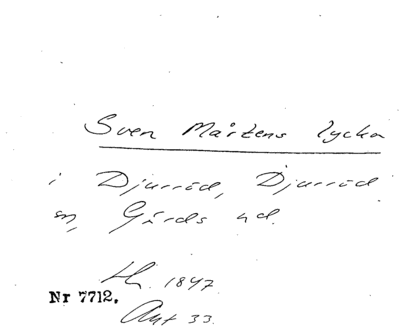 Sven Mårtens lycka
i Djurröd, Djurröd
sn, Gärds hd.
Hh. 1847
Nr 7712.
Akt 33.